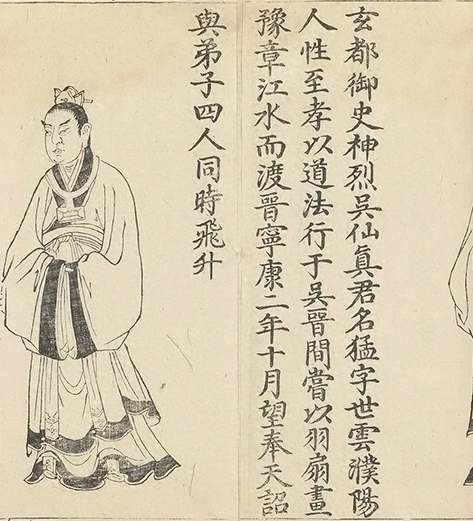 玄都御史神烈吳仙眞君名猛字世雲濮陽
人性至孝以道法行于吳晉間嘗以羽扇畫
豫章江水而渡晉寧康二年十月望奉天詔
與弟子四人同時飛升